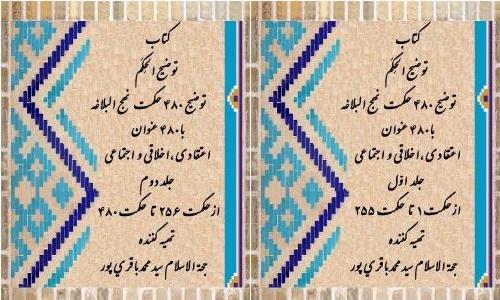 کتاب
توضیح الحکم
توضیح ۴۸۰ حکمت نهج البلاغه
با ۴۸۰ عنوان
اعتقادی، اخلاقی و اجتماعی
جلد اوّل
از حکمت ۱ تا حکمت ۲۵۵
تهیه کننده
حجة الاسلام سید محمد باقری پور
کتاب
توضیح الحکم
توضیح ۴۸۰ حکمت نهج البلاغه
با ۴۸۰ عنوان
اعتقادی، اخلاقی و اجتماعی
جلد دوم
از حکمت ۲۵۶ تا حکمت ۴۸۰
تهیه کننده
حجة الاسلام سید محمد باقری پور